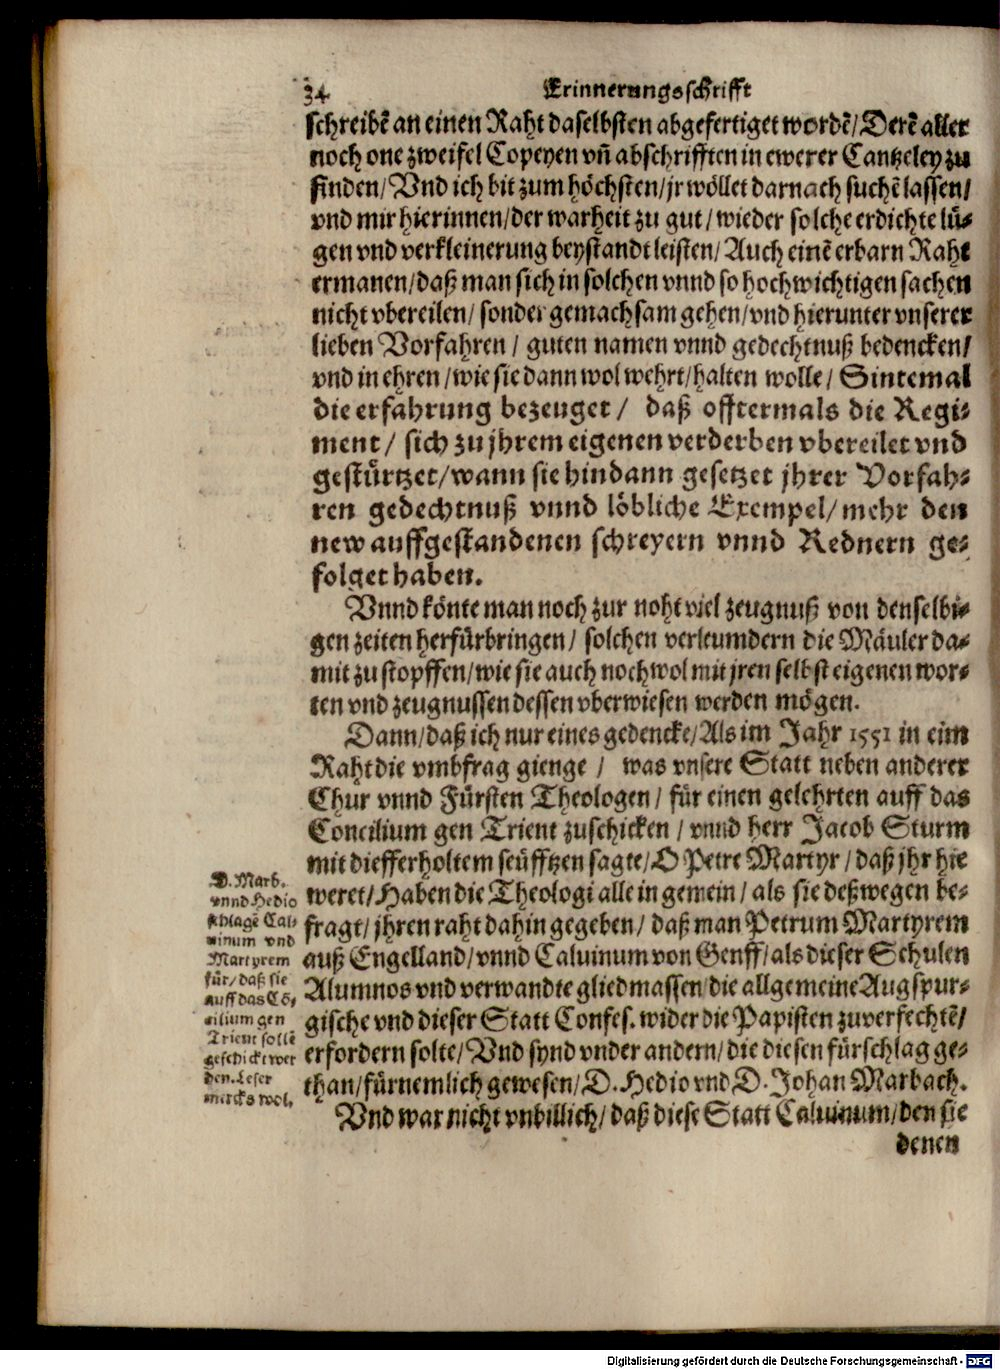 34 Erinnerungsschrifft
schreibẽ an einen Raht daselbsten abgefertiget wordẽ/ Derẽ aller
noch one zweifel Copeyen vñ abschrifften in ewerer Cantzeley zu
finden/ Vnd ich bit zum höchsten/ jr wöllet darnach suchẽ lassen/
vnd mir hierinnen/ der warheit zu gut/ wieder solche erdichte lü-
gen vnd verkleinerung beystandt leisten/ Auch einẽ erbarn Raht
ermanen/ daß man sich in solchen vnnd so hochwichtigen sachen
nicht vbereilen/ sonder gemachsam gehen/ vnd hierunter vnserer
lieben Vorfahren/ guten namen vnnd gedechtnuß bedencken/
vnd in ehren/ wie sie dann wol wehrt/ halten wolle/ Sintemal
die erfahrung bezeuget/ daß offtermals die Regi-
ment/ sich zu jhrem eigenen verderben vbereilet vnd
gestürtzet/ wann sie hindann gesetzet jhrer Vorfah-
ren gedechtnuß vnnd löbliche Exempel/ mehr den
new auffgestandenen schreyern vnnd Rednern ge-
folget haben.
Vnnd könte man noch zur noht viel zeugnuß von denselbi-
gen zeiten herfürbringen/ solchen verleumdern die Mäuler da-
mit zu stopffen/ wie sie auch noch wol mit jren selbst eigenen wor-
ten vnd zeugnussen dessen vberwiesen werden mögen.
Dann/ daß ich nur eines gedencke/ Als im Jahr 1551 in eim
Raht die vmbfrag gienge/ was vnsere Statt neben anderer
Chur vnnd Fürsten Theologen/ für einen gelehrten auff das
Concilium gen Trient zuschicken/ vnnd herr Jacob Sturm
mit diefferholtem seüfftzen sagte/ O Petre Martyr/ daß jhr hie
weret/ Haben die Theologi alle in gemein/ als sie deßwegen be-
fragt/ jhren raht dahin gegeben/ daß man Petrum Martyrem
auß Engelland/ vnnd Caluinum von Genff/ als dieser Schulen
Alumnos vnd verwandte gliedmassen/ die allgemeine Augspur-
gische vnd dieser Statt Confes. wider die Papisten zuverfechtẽ/
erfordern solte/ Vnd synd vnder andern/ die diesen fürschlag ge-
than/ fürnemlich gewesen/ D. Hedio vnd D. Johan Marbach.
Vnd war nicht vnbillich/ daß diese Statt Caluinum/ den sie
denen
D. Marb.
vnnd Hedio
schlagẽ Cal-
uinum vnd
Martyrem
für/ daß sie
auff das Cõ-
cilium gen
Trient sollẽ
geschickt wer
den. Leser
mercks wol.
Digitalisierung gefördert durch die Deutsche Forschungsgemeinschaft - DFG